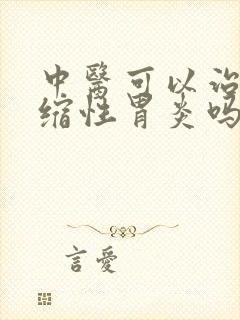 中醫可以治
缩性胃炎吗
言愛